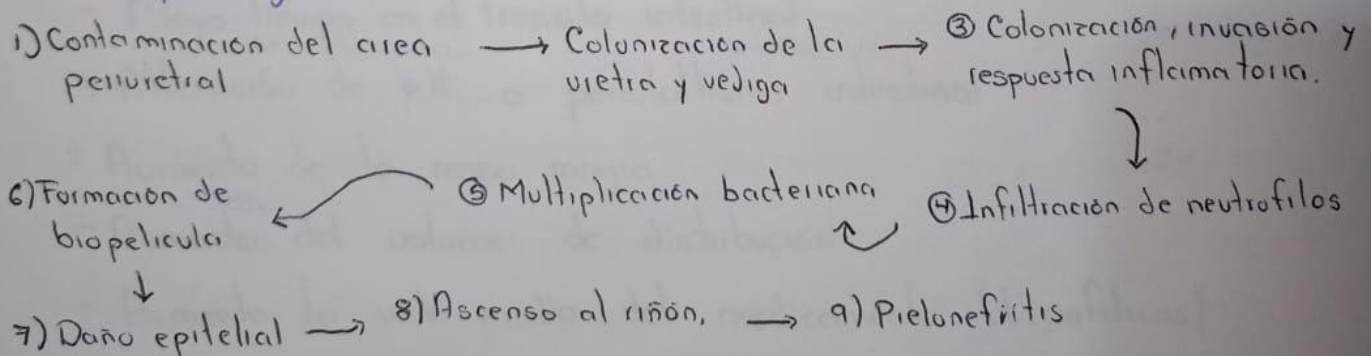 1) Contaminación del area
periuretral
→ Colonización de la
uretra y vejiga
→ ③ Colonización, invasión y
respuesta inflamatoria.
④ Infiltración de neutrofilos
⑤ Multiplicación bacteriana
6) Formación de
biopelicula
7) Daño epitelial → 8) Ascenso al riñón. → 9) Pielonefritis